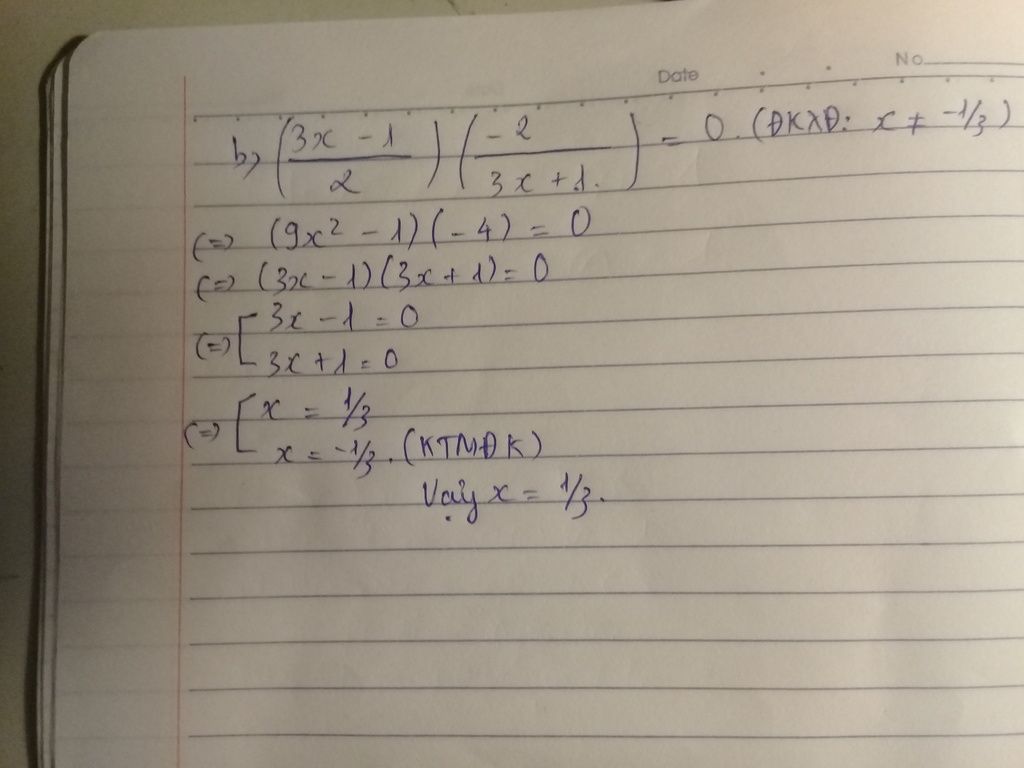 Date No
b, (3x - 1 / 2) (-2 / 3x + 1.) = 0. (ĐKXĐ: x ≠ -1/3)
(=) (9x² - 1)(-4) = 0
(=) (3x - 1)(3x + 1) = 0
(=) [ 3x - 1 = 0
3x + 1 = 0
(=) [ x = 1/3
x = -1/3. (KTMĐK)
Vậy x = 1/3.